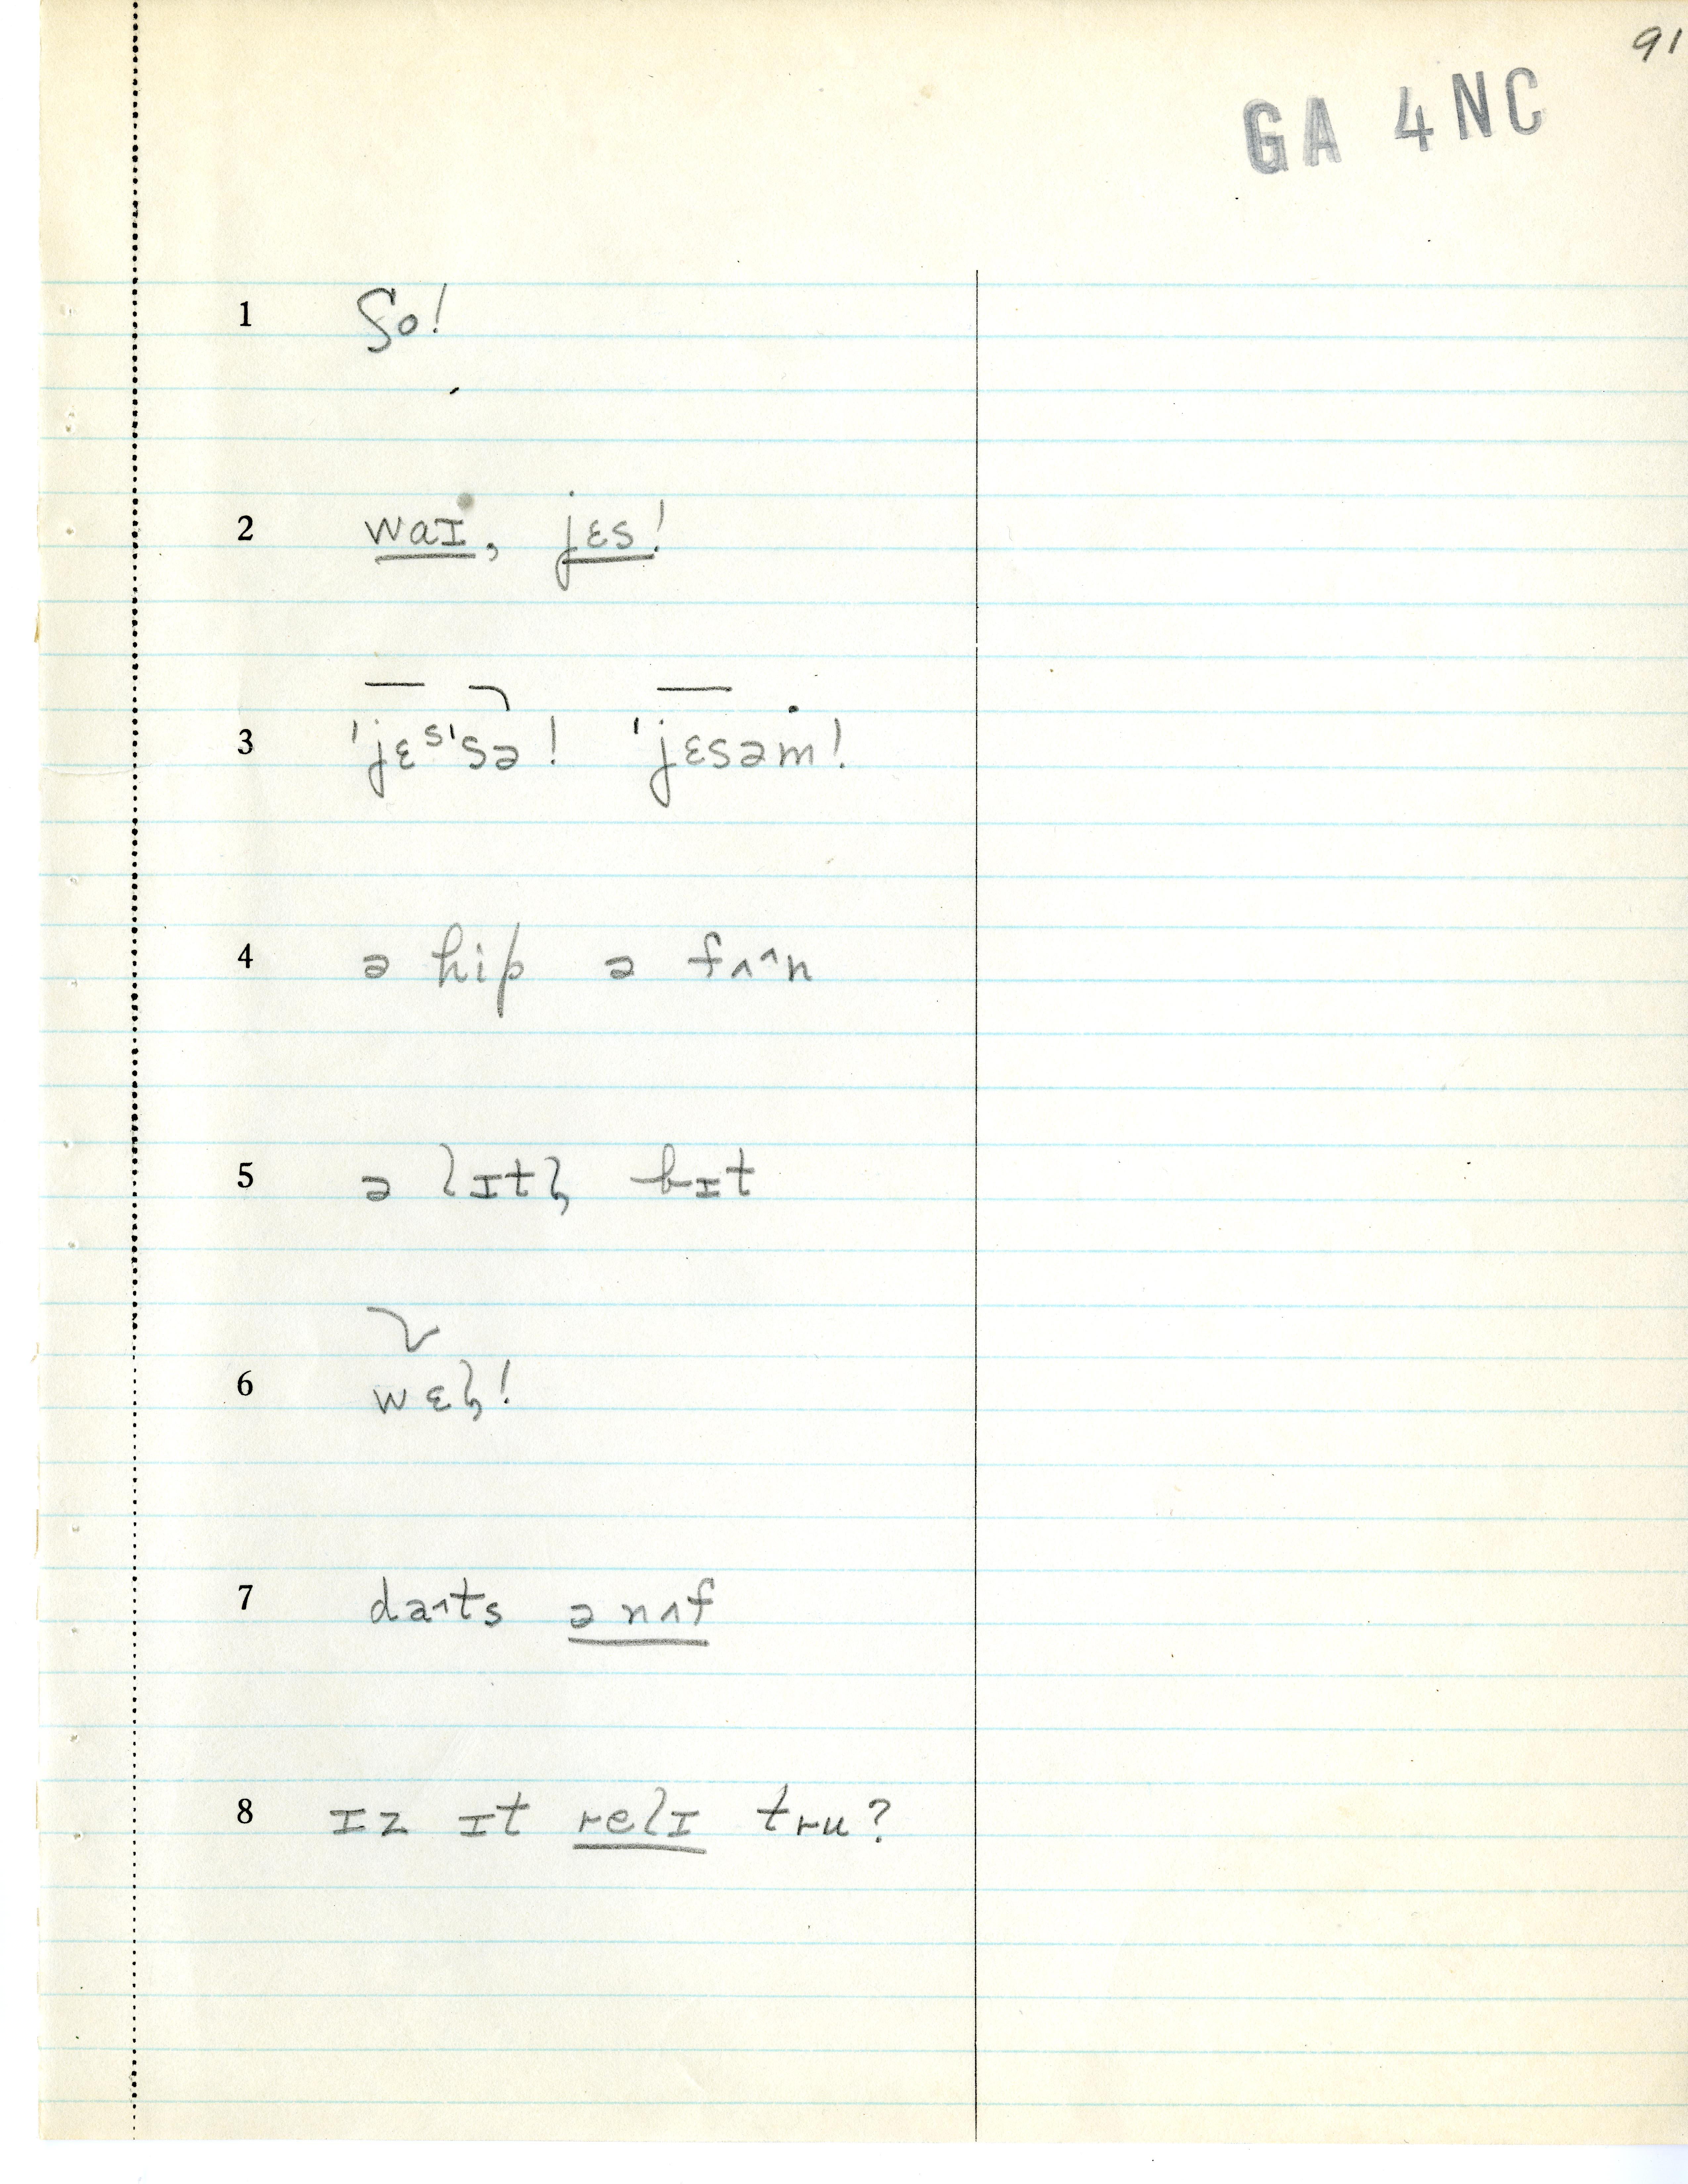 91
GA 4 NC
1 ʃo!
2 waɪ, jɛs!
3 'jɛˢ'sə! 'jɛsəm!
4 ə hip ə fʌ^n
5 ə lɪtl̩ bɪt
6 wɛl̩!
7 da^ts ənʌf
8 ɪz ɪt relɪ tru?